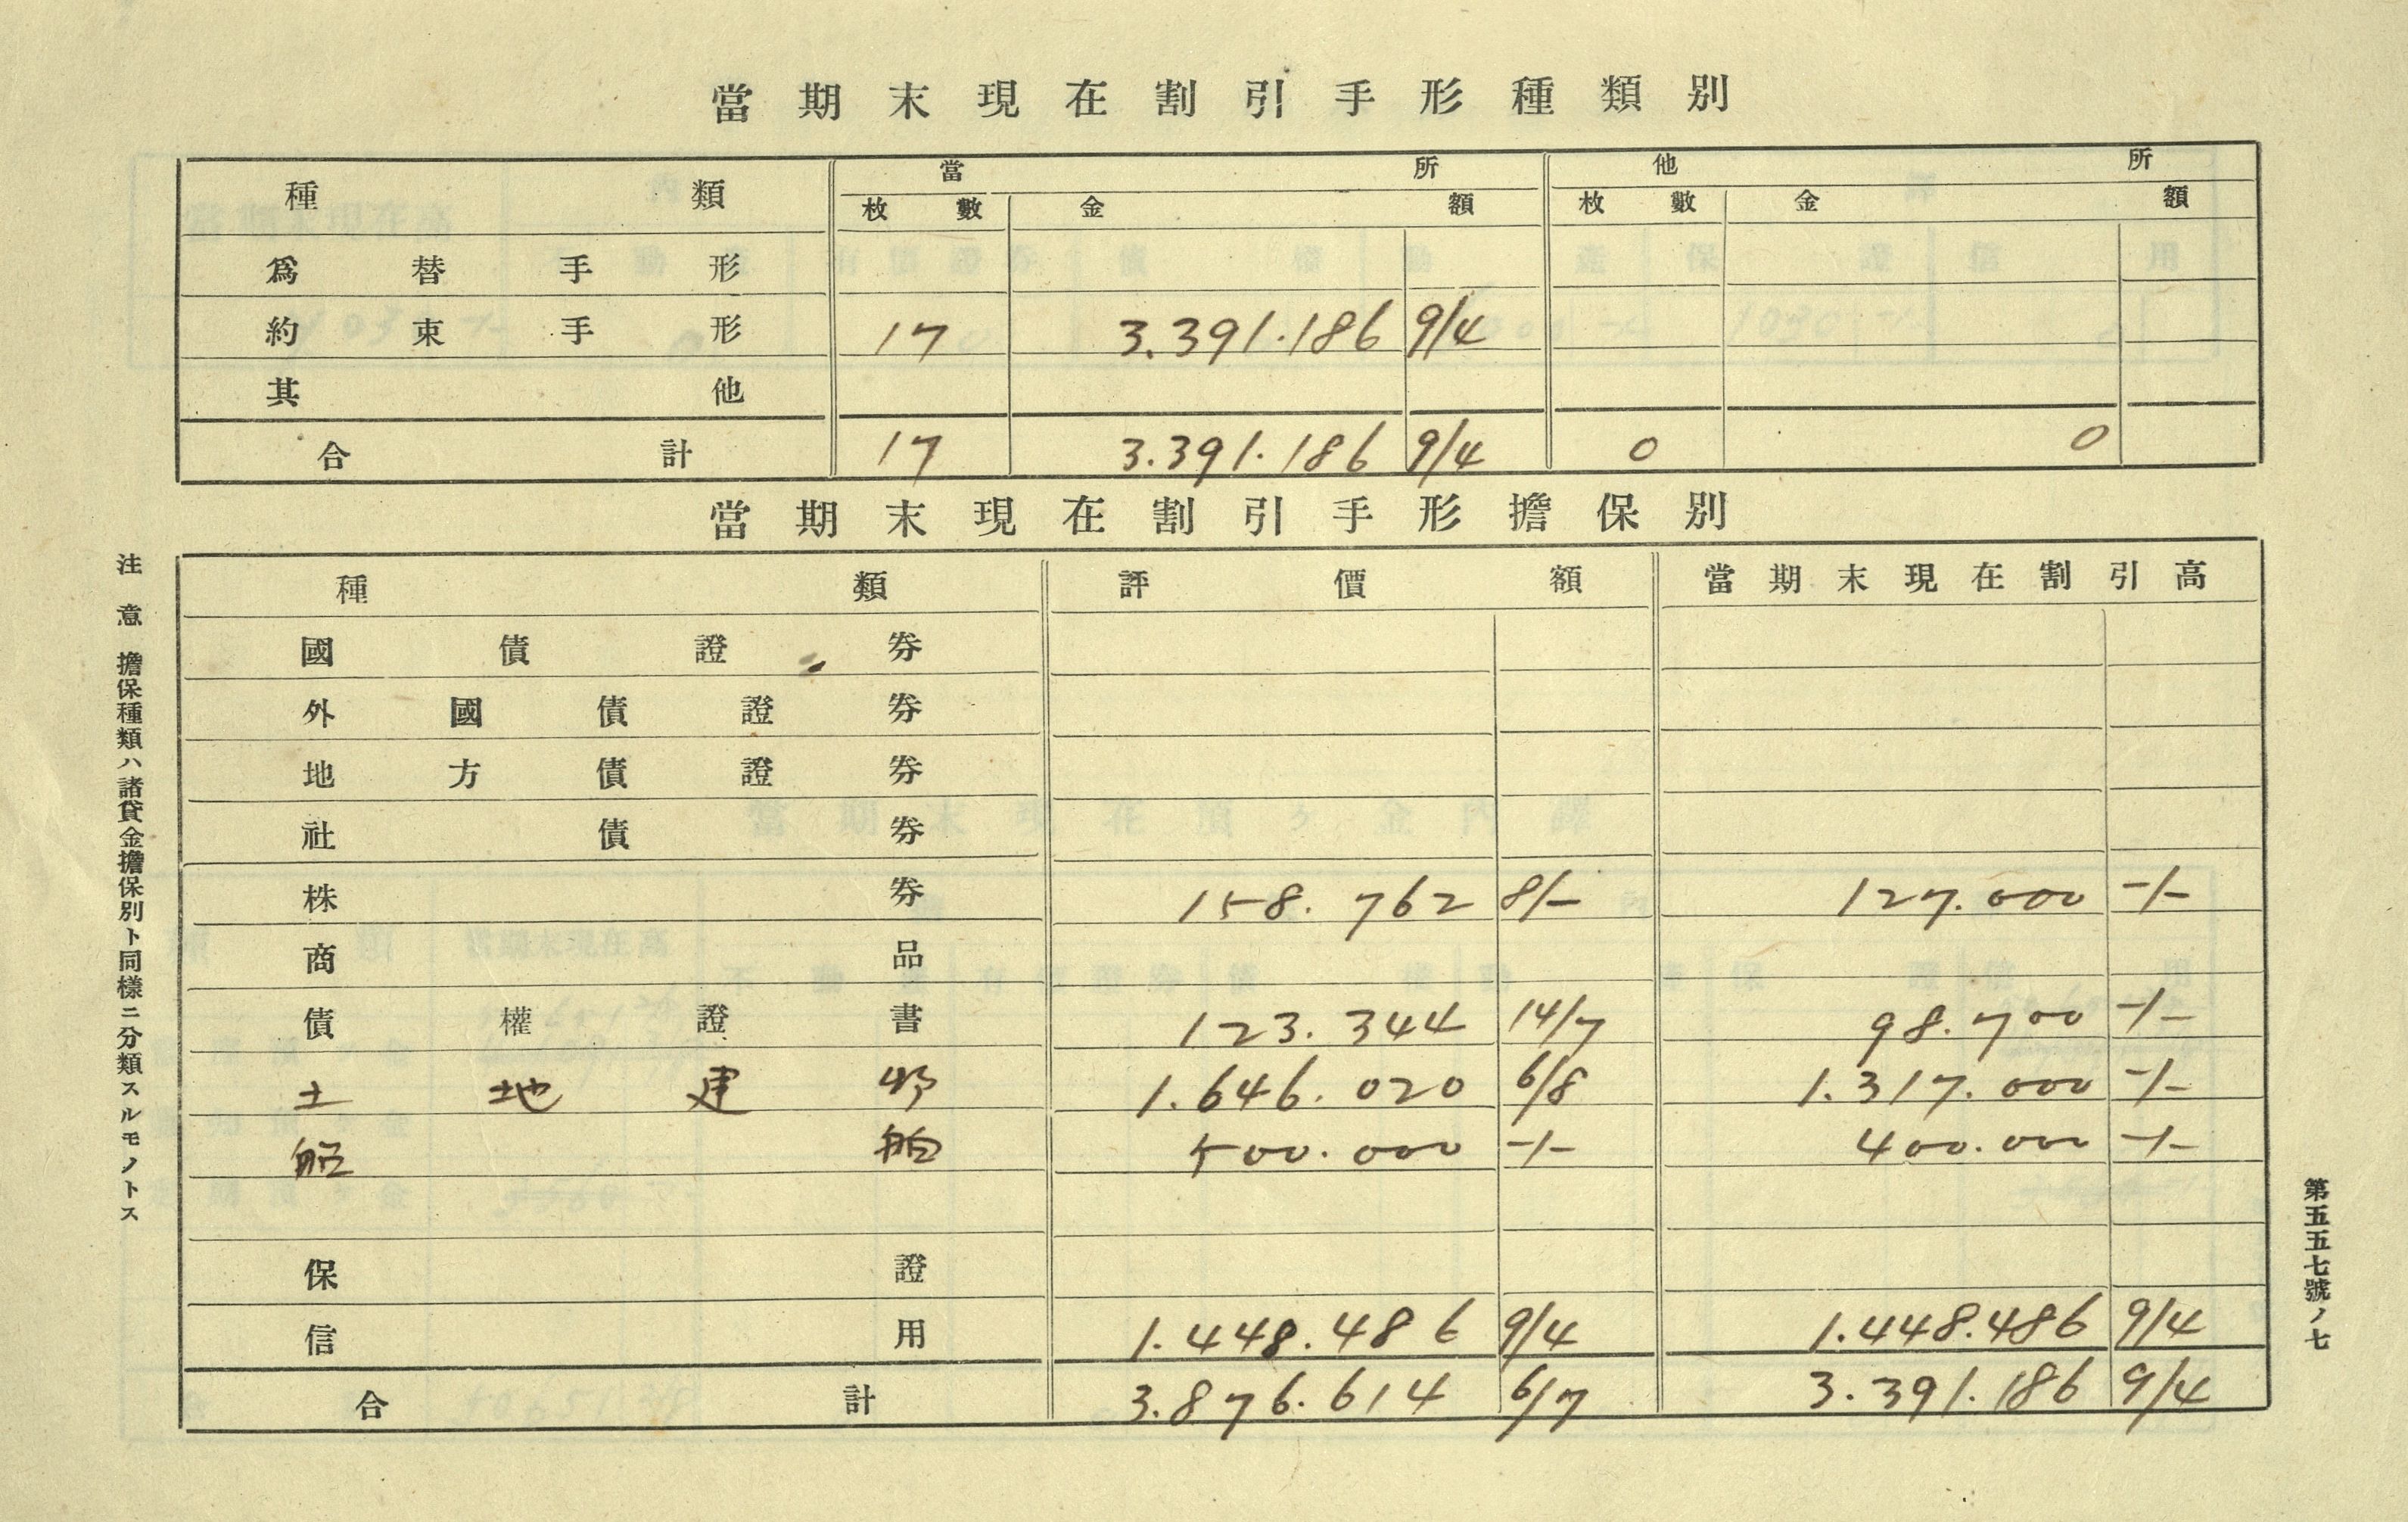 當期末現在割引手形種類別
種類 當所 他所
枚數 金額 枚數 金額
爲替手形
約束手形 17 3.391.186 9/4
其他
合計 17 3.391.186 9/4 0 0
當期末現在割引手形擔保別
種類 評價額 當期末現在割引高
國債證券
外國債證券
地方債證券
社債券
株券 158.762 8/- 127.000 -/-
商品
債權證書 123.344 14/7 98.700 -/-
土地建物 1.646.020 6/8 1.317.000 -/-
船舶 500.000 -/- 400.000 -/-
保證
信用 1.448.486 9/4 1.448.486 9/4
合計 3.876.614 6/7 3.391.186 9/4
注意 擔保種類ハ諸貸金擔保別ト同樣ニ分類スルモノトス
第五五七號ノ七